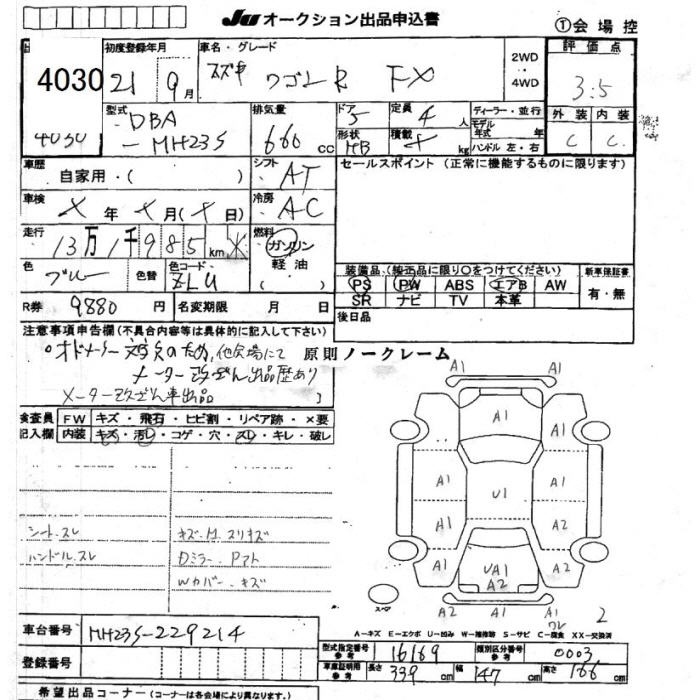 JU オークション出品申込書
① 会 場 控
4030
4030
初度登録年月
21 9月
車名・グレード
スズキ ワゴンR FX
2WD
・
4WD
評 価 点
3.5
外 装 内 装
C C
型式
DBA
-MH23S
排気量
660 cc
ドア
5
定員
4 人
形状
HB
積載
kg
ディーラー・並行
モデル
年式 年
ハンドル 左・右
車歴
自家用・( )
シフト
AT
セールスポイント (正常に機能するものに限ります)
車検
年 月( 日)
冷房
AC
走行
13万1千985km
燃料
ガソリン
軽 油
( )
色
ブルー
色替
色コード
ZLU
装備品 (純正品に限り○をつけてください)
PS PW ABS エアB AW
SR ナビ TV 本革
新車保証書
有・無
R券 9880 円
名変期限 月 日
後日品
注意事項申告欄 (不具合内容等は具体的に記入して下さい)
原則ノークレーム
メーター改ざん出品歴あり
メーター改ざん車出品
検査員
記入欄
FW キズ・飛石・ヒビ割・リペア跡・×要
内装 キズ・汚レ・コゲ・穴・スレ・キレ・破レ
シートスレ
ハンドルスレ
Wカバー・キズ
A1
A1
A1 A1
A1
A1 U1 A1
A1 A2
A1 UA1 A2
A2
A2 A1 A1
スペア
2
A-キズ E-エクボ U-凹み W-補修跡 S-サビ C-腐食 XX-交換済
車台番号 MH23S-229214
登録番号
型式指定番号
参考
16169
類別区分番号
参考
0003
車庫証明用
参考
長さ 339 cm
幅 147 cm
高さ 166 cm
希望出品コーナー (コーナーは各会場により異なります)